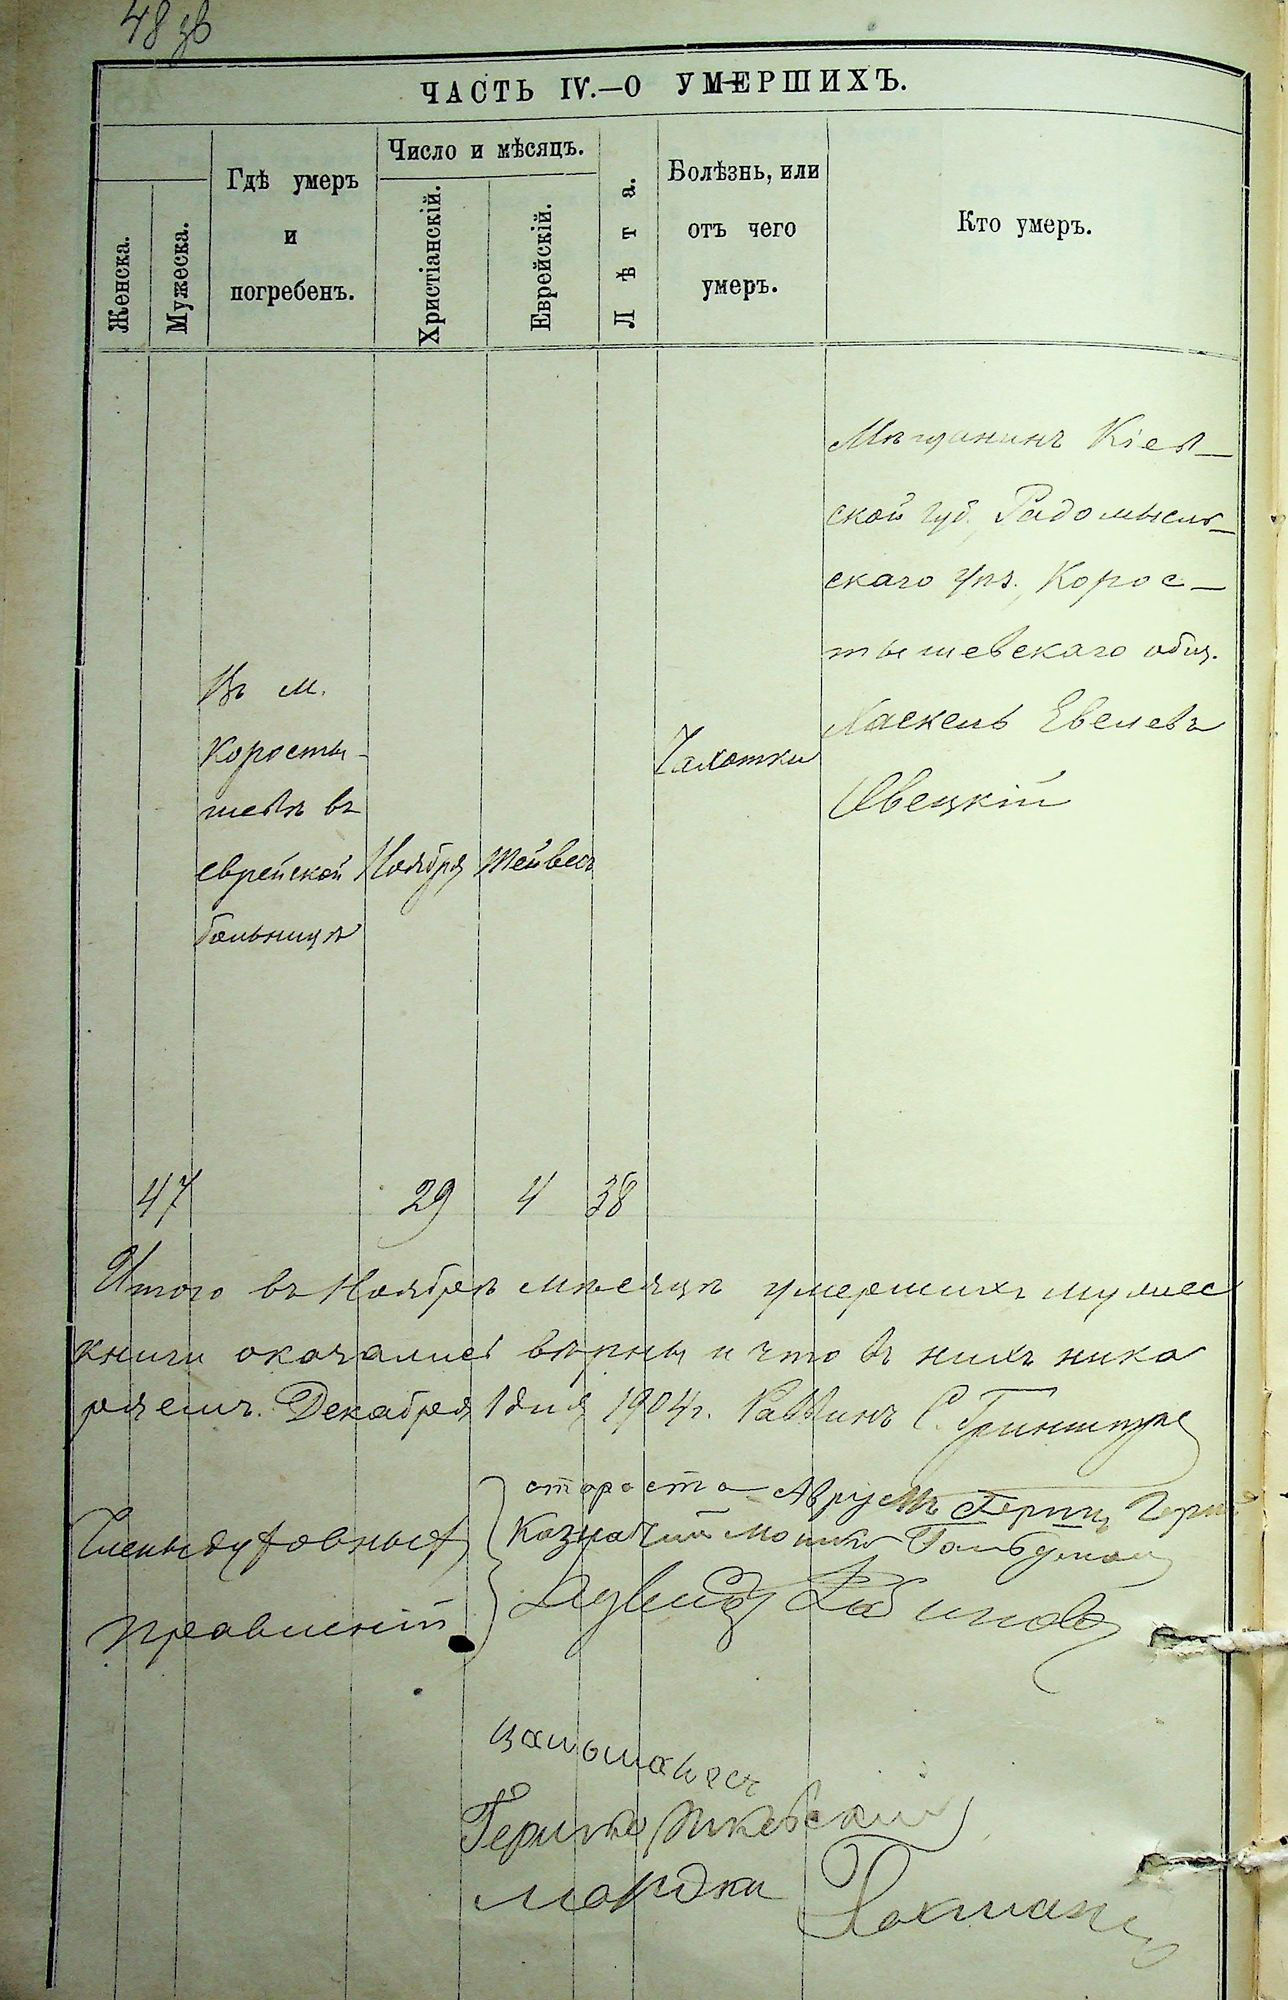 48 зв
ЧАСТЬ IV.—О УМЕРШИХЪ.
Женска.
Мужеска.
Гдѣ умеръ
и
погребенъ.
Число и мѣсяцъ.
Христіанскій.
Еврейскій.
Лѣта.
Болѣзнь, или
отъ чего
умеръ.
Кто умеръ.
47
Въ м.
Коросты-
шевѣ въ
еврейской
больницѣ
Ноября
29
Тейвесъ
4
38
Чахотки
Мѣщанинъ Кіев-
ской губ., Радомысль-
скаго уѣз., Корос-
тышевскаго общ.
Хаскель Евелевъ
Овецкій
Итого въ Ноябрѣ мѣсяцѣ умершихъ мужес
книги оказались вѣрны и что въ нихъ ника
ряемъ. Декабря 1 дня 1904 г. Раввинъ С. Гриншпунъ
Члены духовныхъ
правленій
староста Аврумъ
Казначей Мошко
Гершко
Мордко Гохман